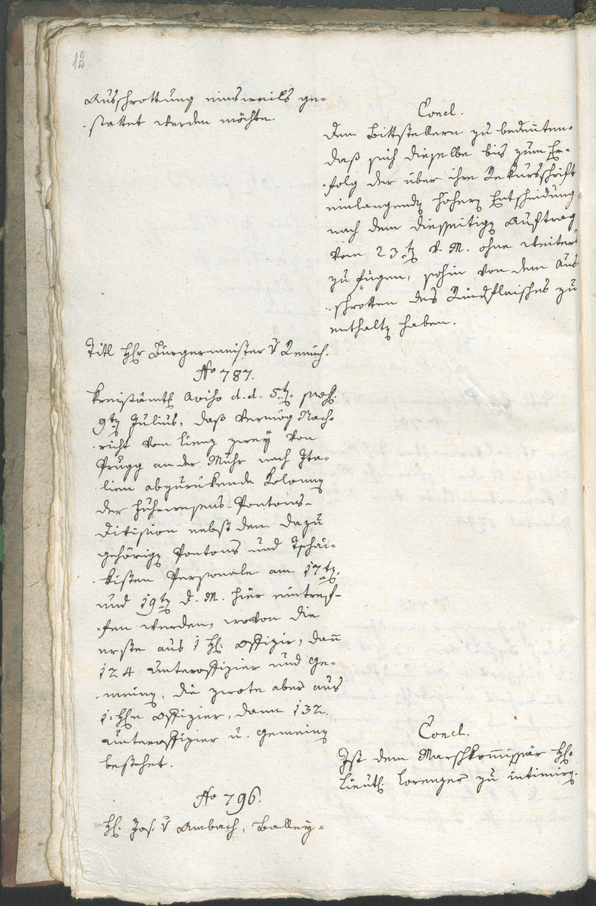 12
Ausschrottung einsweils ge-
stattet werden möchte.
Concl.
Dem Bittstellern zu bedeuten,
daß sich dieselbe bis zum Er-
folg der über ihre Rekursschrift
einlangende höhere Entscheidung
nach dem dießeitige Auftrag
vom 23t d. M. ohne weiters
zu fügen, sohin von dem Aus-
schrotten des Rindfleisches zu
enthalte haben.
Titl Hhr Bürgermeister v
No 787.
Kreisämtl. Aviso d. d. 5t
9t Julius, daß vermög Nach-
richt von Lienz zwey von
Prugg an der Muhr nach Ita-
lien abzurückende Kolonne
der Pontons-
Division nebst dem dazu
gehörige Pontons und Tschai-
kisten Personale am 17t
und 19t d. M. hier eintref-
fen werden, wovon die
erste aus 1 H. Offizier, dañ
124 Unteroffizier und Ge-
meine, die zwote aber aus
1 Hln Offizier, dann 132
Unteroffizier u. Gemeine
bestehet.
Concl.
Ist dem Marschkom̄issär H.
Lieut. Lorenzer zu intimire.
No 796.
H. Jos. v Ambach, Balley-